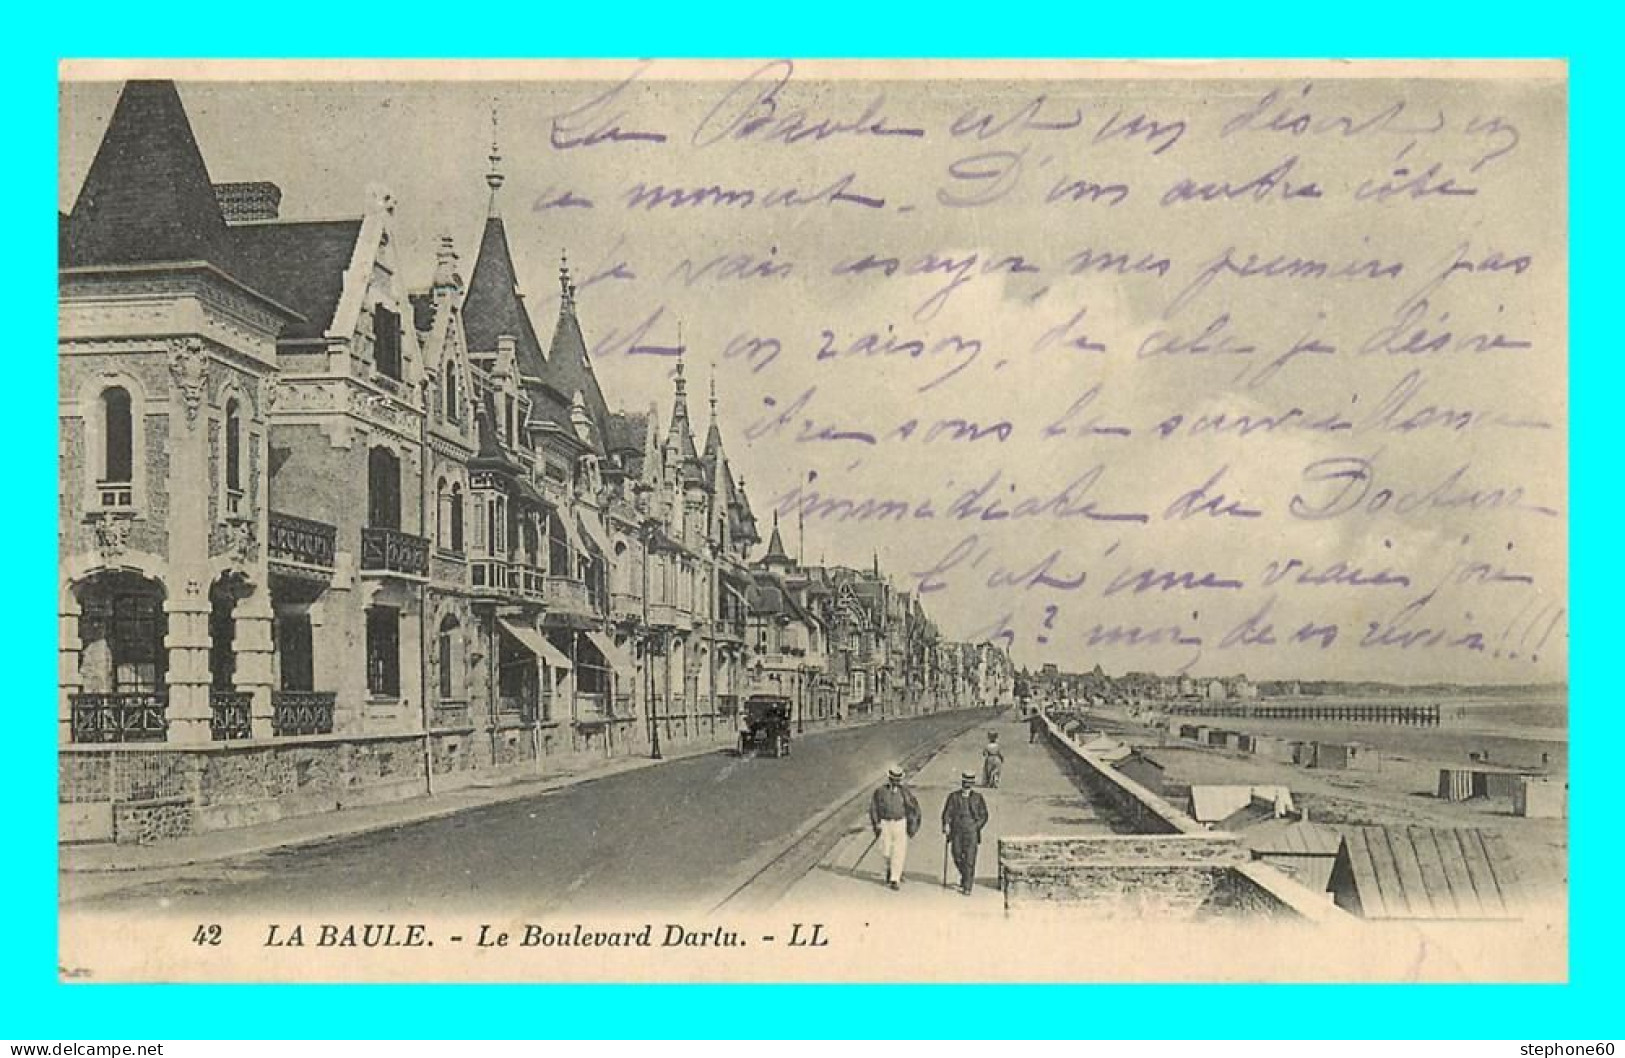 La Baule est un désert en
ce moment _ D'un autre côté
je vais essayer mes premiers pas
et en raison de cela, je désire
être sous la surveillance
immédiate du Docteur _
C'est une vraie joie
pr moi de vs revoir !!!
42 LA BAULE. - Le Boulevard Dartu. - LL
www.delcampe.net
stephone60